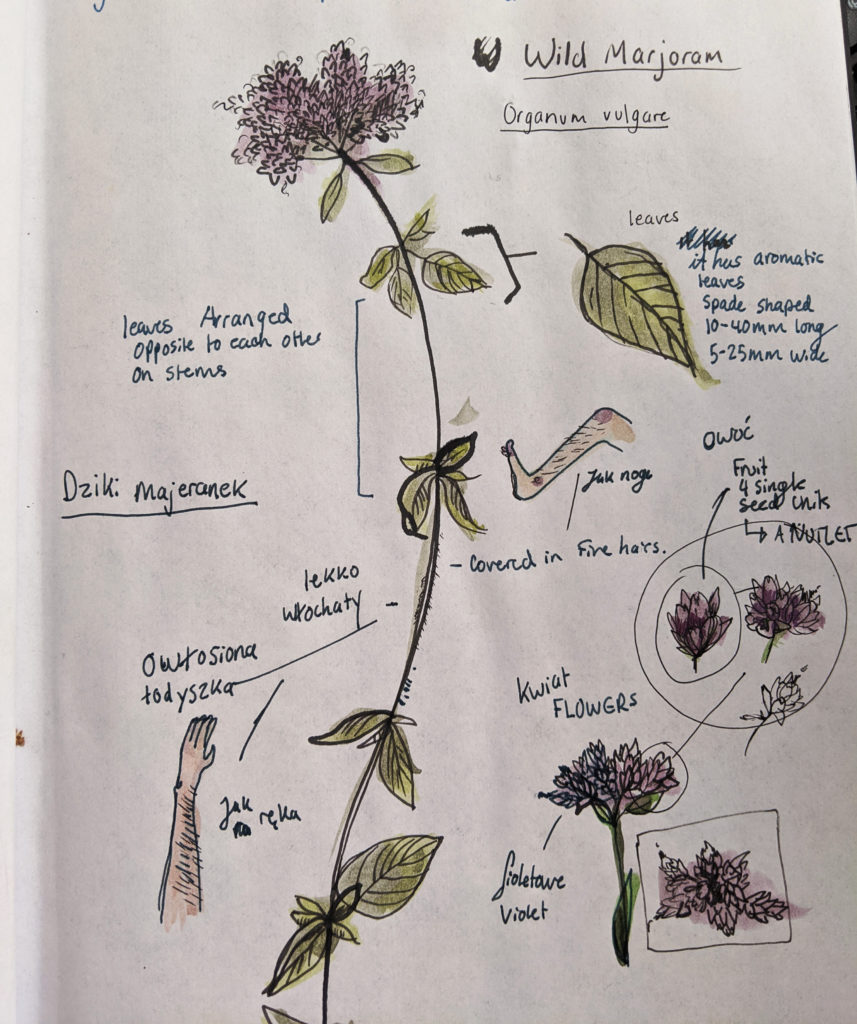 Wild Marjoram
Organum vulgare
leaves
it has aromatic
leaves
spade shaped
10-40mm long
5-25mm wide
leaves Arranged
opposite to each other
on stems
Dziki majeranek
Jak noga
owoć
Fruit
4 single
seed
↳ A NUTLET
- Covered in Fine hairs.
lekko
włochaty -
Owłosiona
łodyszka
Jak
ręka
Kwiat
FLOWERS
fioletowe
violet